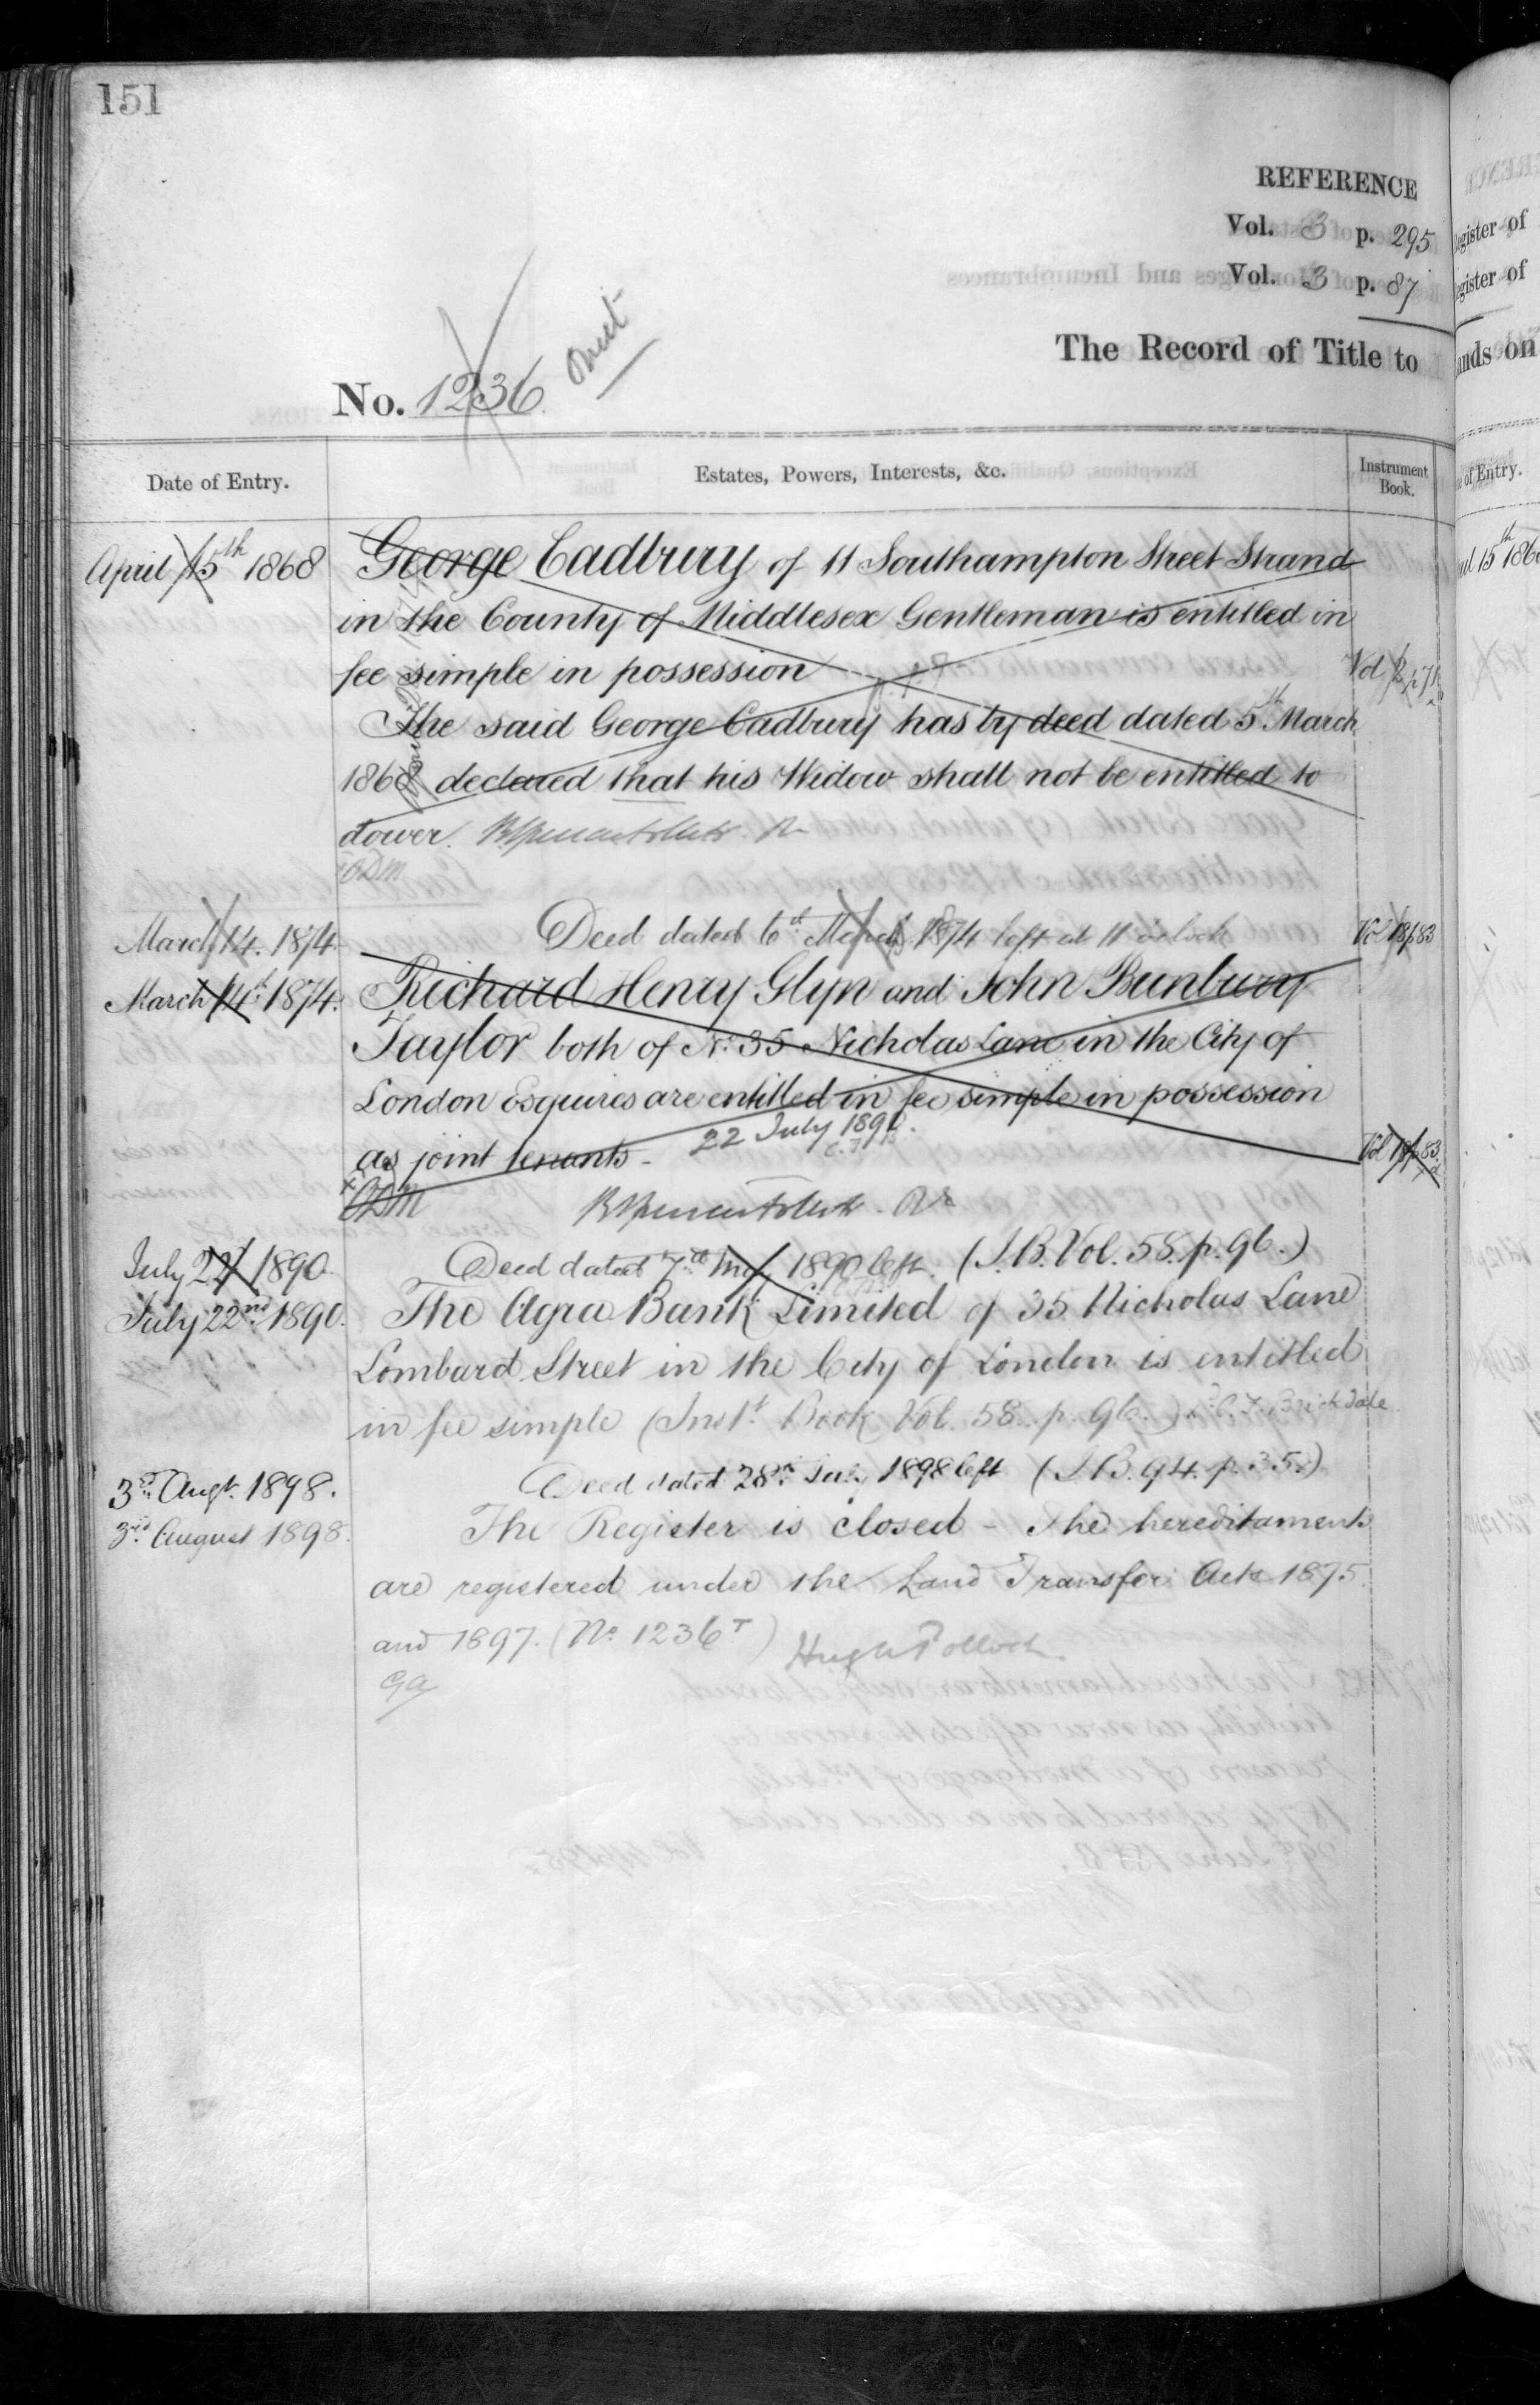 151
REFERENCE
Vol. 3 p. 295
Vol. 3 p. 87
The Record of Title to
No. 1236.
Date of Entry.
Estates, Powers, Interests, &c.
Instrument Book.
April 15th 1868
George Cadbury of 11 Southampton Street Strand
in the County of Middlesex Gentleman is entitled in
fee simple in possession
The said George Cadbury has by deed dated 5th March
1868 declared that his Widow shall not be entitled to
dower.
March 14. 1874
Deed dated 6th March 1874 left at 11 o'clock
Vol 18 p 83
March 14th 1874.
Richard Henry Glyn and John Bunbury
Taylor both of No. 35 Nicholas Lane in the City of
London Esquires are entitled in fee simple in possession
22 July 1890.
as joint tenants -
Vol 18 p 83.
July 22 1890
Deed dated 7th May 1890 left. (I.B. Vol. 58. p. 96.)
July 22nd 1890.
The Agra Bank Limited of 35 Nicholas Lane
Lombard Street in the City of London is entitled
in fee simple (Inst. Book Vol. 58. p. 96.) C. F. Brickdale
3rd Augt. 1898.
Deed dated 28th July 1898 left (I.B. 94. p. 35.)
3rd August 1898.
The Register is closed - The hereditaments
are registered under the Land Transfer Acts 1875
and 1897. (No. 1236T) Hugh Pollock